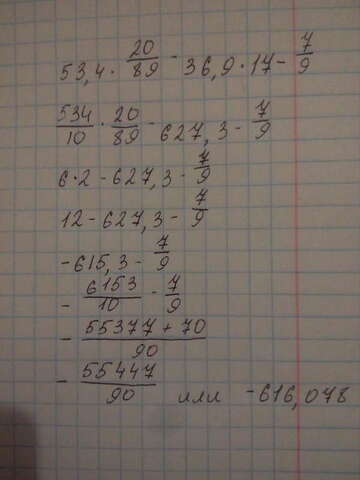 53,4 · 20/89 - 36,9 · 17 - 7/9
534/10 · 20/89 - 627,3 - 7/9
6 · 2 - 627,3 - 7/9
12 - 627,3 - 7/9
- 615,3 - 7/9
- 6153/10 - 7/9
- 55377 + 70/90
- 55447/90 или -616,078